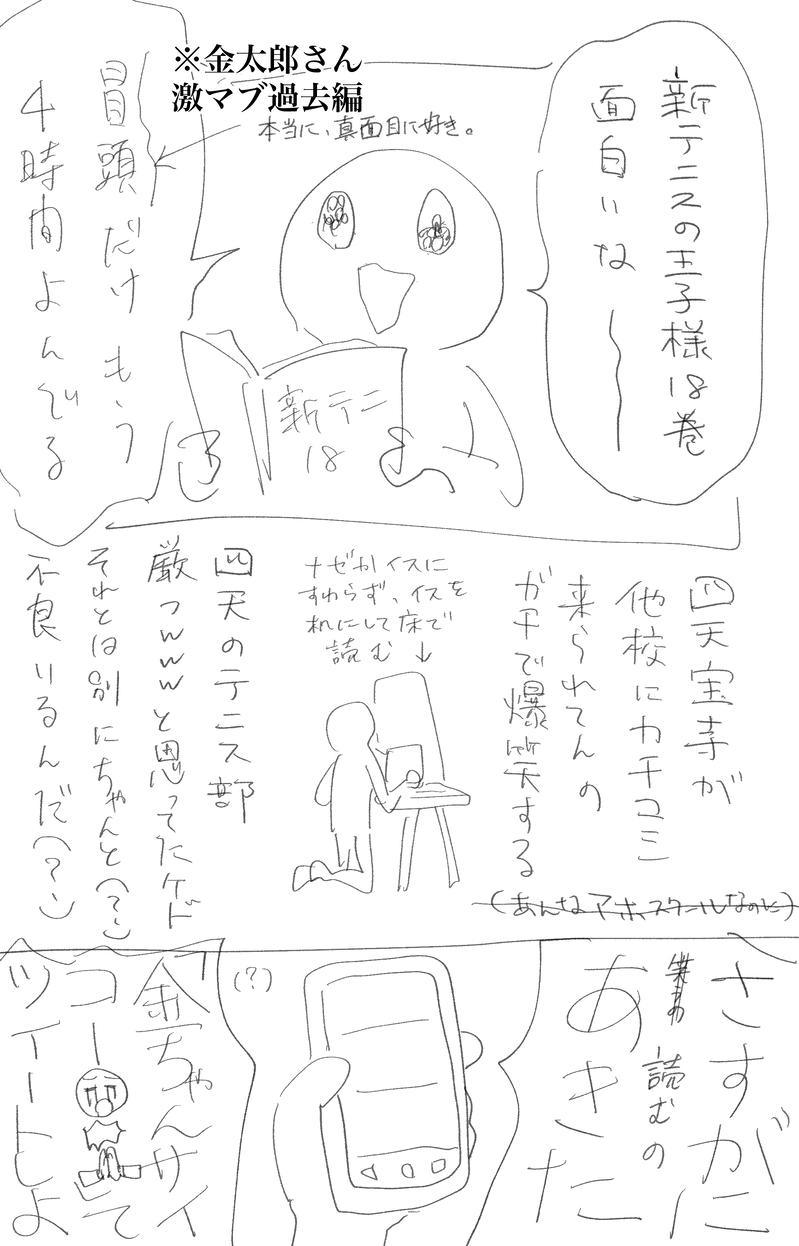 新テニスの王子様18巻
面白いな〜
※金太郎さん
激マブ過去編
本当に、真面目に好き。
冒頭だけもう
4時間よんでる
新テニ
18
四天宝寺が
他校にカチコミ
来られてんの
ガチで爆笑する
(あんなアホスクールなのに)
ナゼかイスに
すわらず、イスを
机にして床で
読む
四天のテニス部
厳つwwwと思ってたケド
それとは別にちゃんと(?)
不良いるんだ(?)
さすがに
読むの
あきた
(?)
金ちゃんサイ
コーって
ツイートしよ